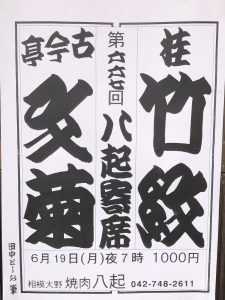 桂
竹紋
第六六七回
八起寄席
古今亭
文菊
6月19日(月)夜7時 1000円
相模大野 焼肉八起 042-748-2611